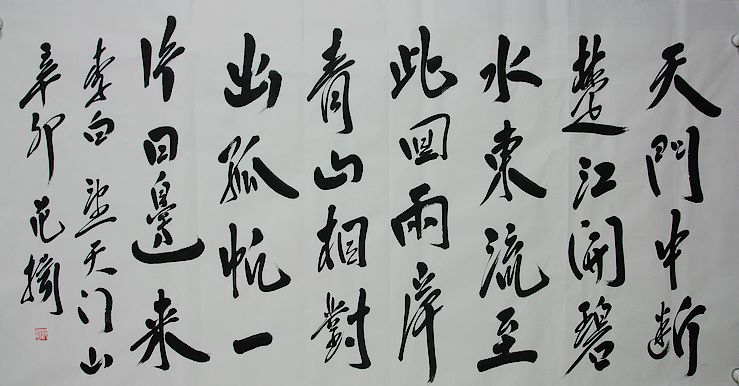 天門中断
楚江開碧
水東流至
此回兩岸
青山相對
出孤帆一
片日邊来
李白望天门山
辛卯范